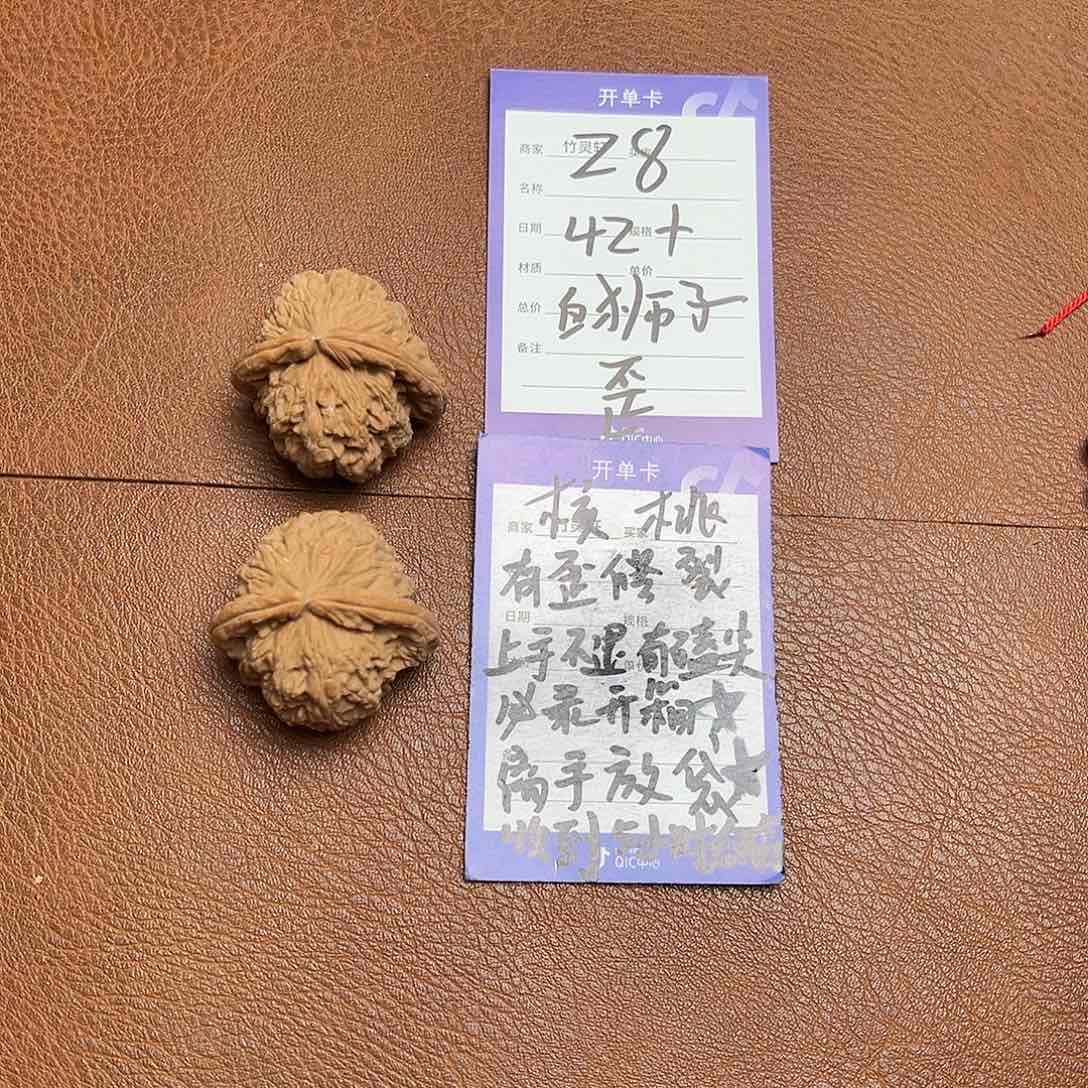 开单卡
商家 竹灵轩
Z8
名称
日期 规格
42+
材质 单价
总价
白狮子
备注
歪
QIC中心
开单卡
核桃
商家 买家
有歪修裂
日期 规格
上手不退有磕尖
必录开箱★
离手放袋★
收到
QIC中心